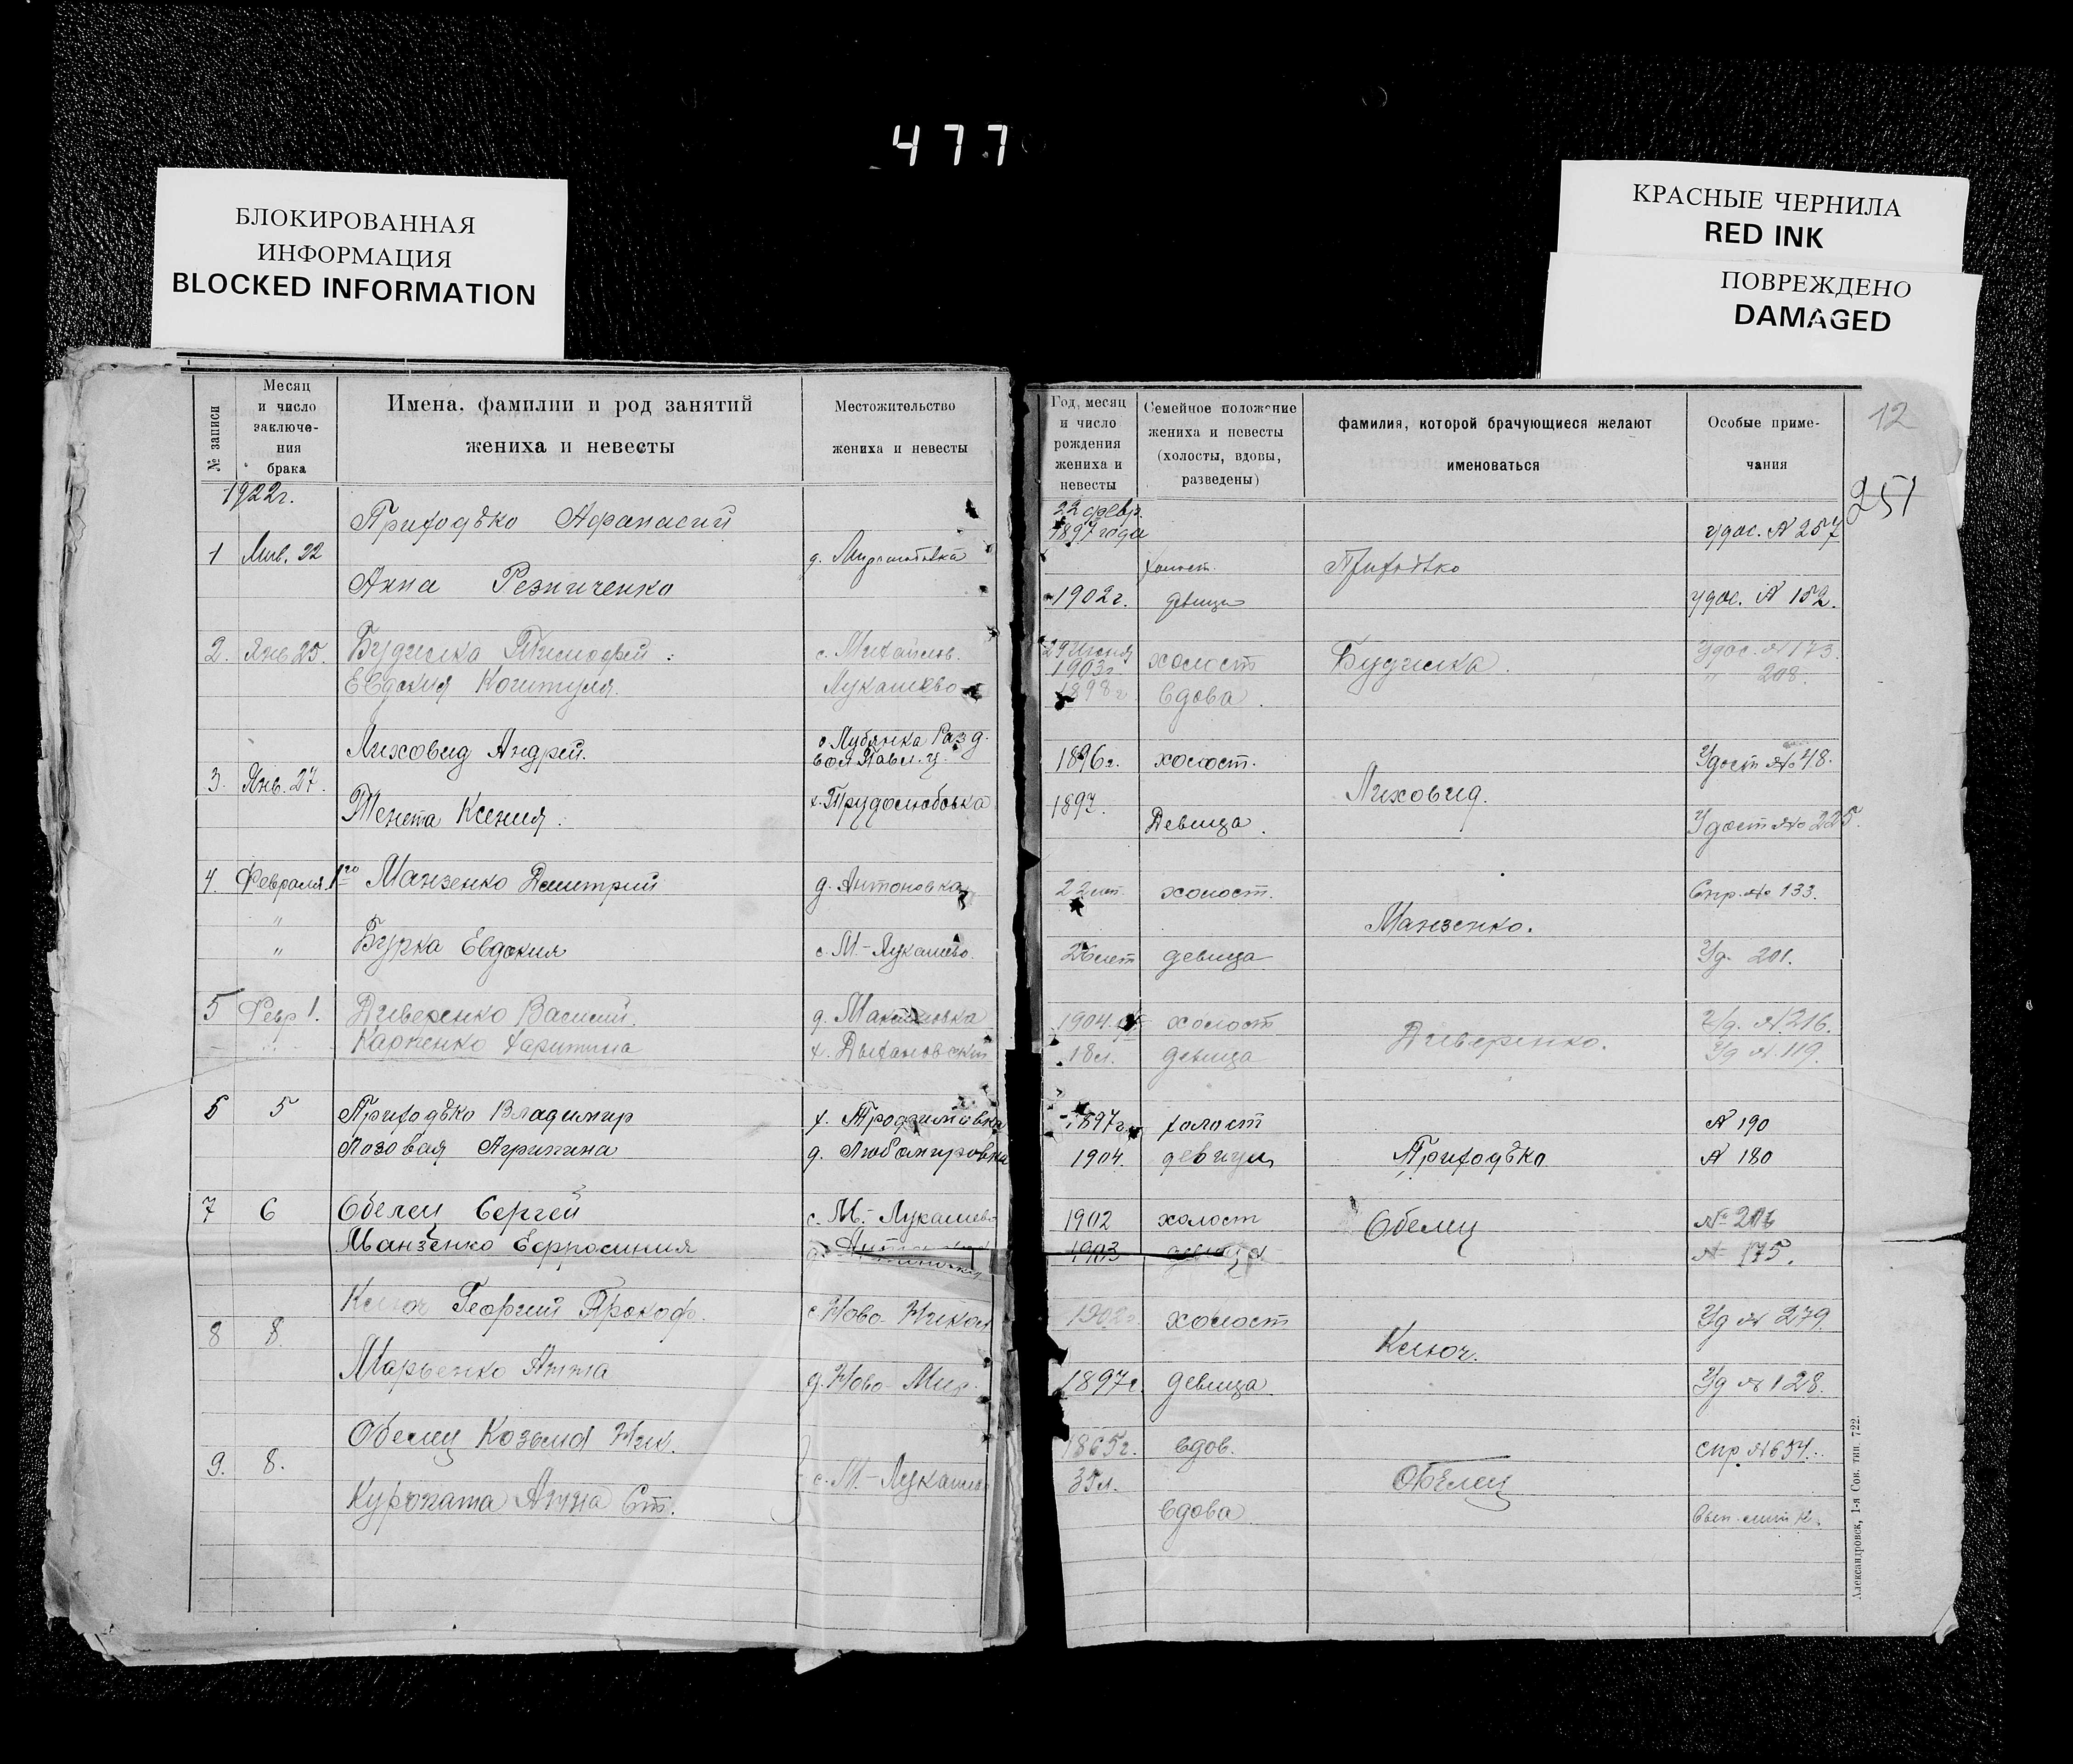 477
БЛОКИРОВАННАЯ
ИНФОРМАЦИЯ
BLOCKED INFORMATION
КРАСНЫЕ ЧЕРНИЛА
RED INK
ПОВРЕЖДЕНО
DAMAGED
№ записи
Месяц
и число
заключе-
ния
брака
Имена, фамилии и род занятий
жениха и невесты
Местожительство
жениха и невесты
Год, месяц
и число
рождения
жениха и
невесты
Семейное положение
жениха и невесты
(холосты, вдовы,
разведены)
фамилия, которой брачующиеся желают
именоваться
Особые приме-
чания
12
251
1922г.
Приходько Афанасий
22 февр.
1897 года
удос. № 257
1 Янв. 22 д.
холост. Приходько
Анна Резниченко
1902г. девица удос. № 152.
2. Янв 25. Будилка Тимофей с. Михайлов.
29 Июня
1903г. холост Будилка. Удос. № 173.
Евдокия Лукашево
1898г. вдова. " 208.
Лиховид Андрей. с Лубянка Разд.
вол Павл. у.
1896г. холост. Удост № 48.
3. Янв. 27. Лиховид.
Тенета Ксения. х. Трудолюбовка
1897. Девица. Удост № 225.
4. Февраля 1го Манзенко Дмитрий д. Антоновка
22 лет холост. Спр. № 133.
" Манзенко.
" Бурка Евдокия с. М.-Лукашево.
26 лет девица Уд. 201.
5 Февр 1. Диверенко Василий. д.
1904 холост Диверенко. Уд. № 216.
Карпенко Харитина х.
18 л. девица Уд № 119.
6 5 Приходько Владимир х. Трофимовка
1897г. холост № 190
Лозовая Агрипина д. Любомировка
1904. девица Приходько № 180
7 6 Обелец Сергей с. М.-Лукашево
1902 холост Обелец №
Манзенко Ефросиния
1903 девица № 175.
Ключ Георгий Прокоф. с. Ново-Никол
1902г. холост Уд № 279.
8 8. Ключ.
Марьенко Анна д. Ново-Мир.
1897г. девица Уд № 128.
Обелец Козьма Ник.
1865г. вдов. спр. № 654.
9. 8. с. М.-Лукашево
35 л. Обелец
Куропата Анна Ст.
вдова
Александровск, 1-я Сов. тип. 722.